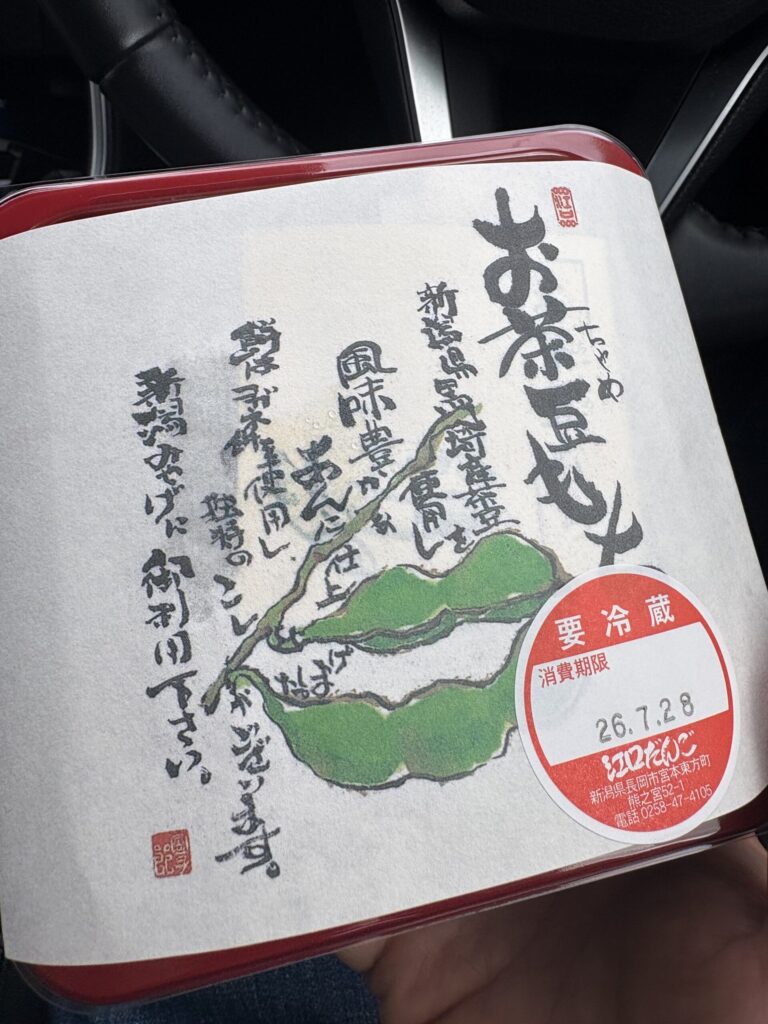 江口
お茶豆もち
ちゃまめ
新潟県黒埼産茶豆を
使用し
風味豊かな
あんに仕上
げました
餅はコガネ餅を使用し
独特のこしがございます。
新潟みやげに御利用下さい。
要冷蔵
消費期限
26.7.28
江口だんご
新潟県長岡市宮本東方町
熊之宮52-1
電話 0258-47-4105